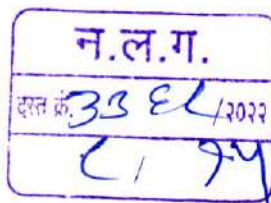 न.ल.ग.
दस्त क्रं. ३३६८/२०२२
८/१५